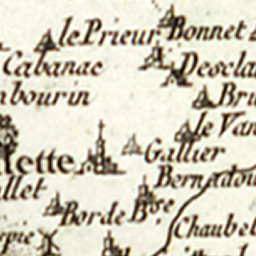 le Prieur Bonnet
Cabanac Descla
mbourin Bru
le Van
lette Gallier
llet Bernadou
Borde Bse
Chaubel
rpie